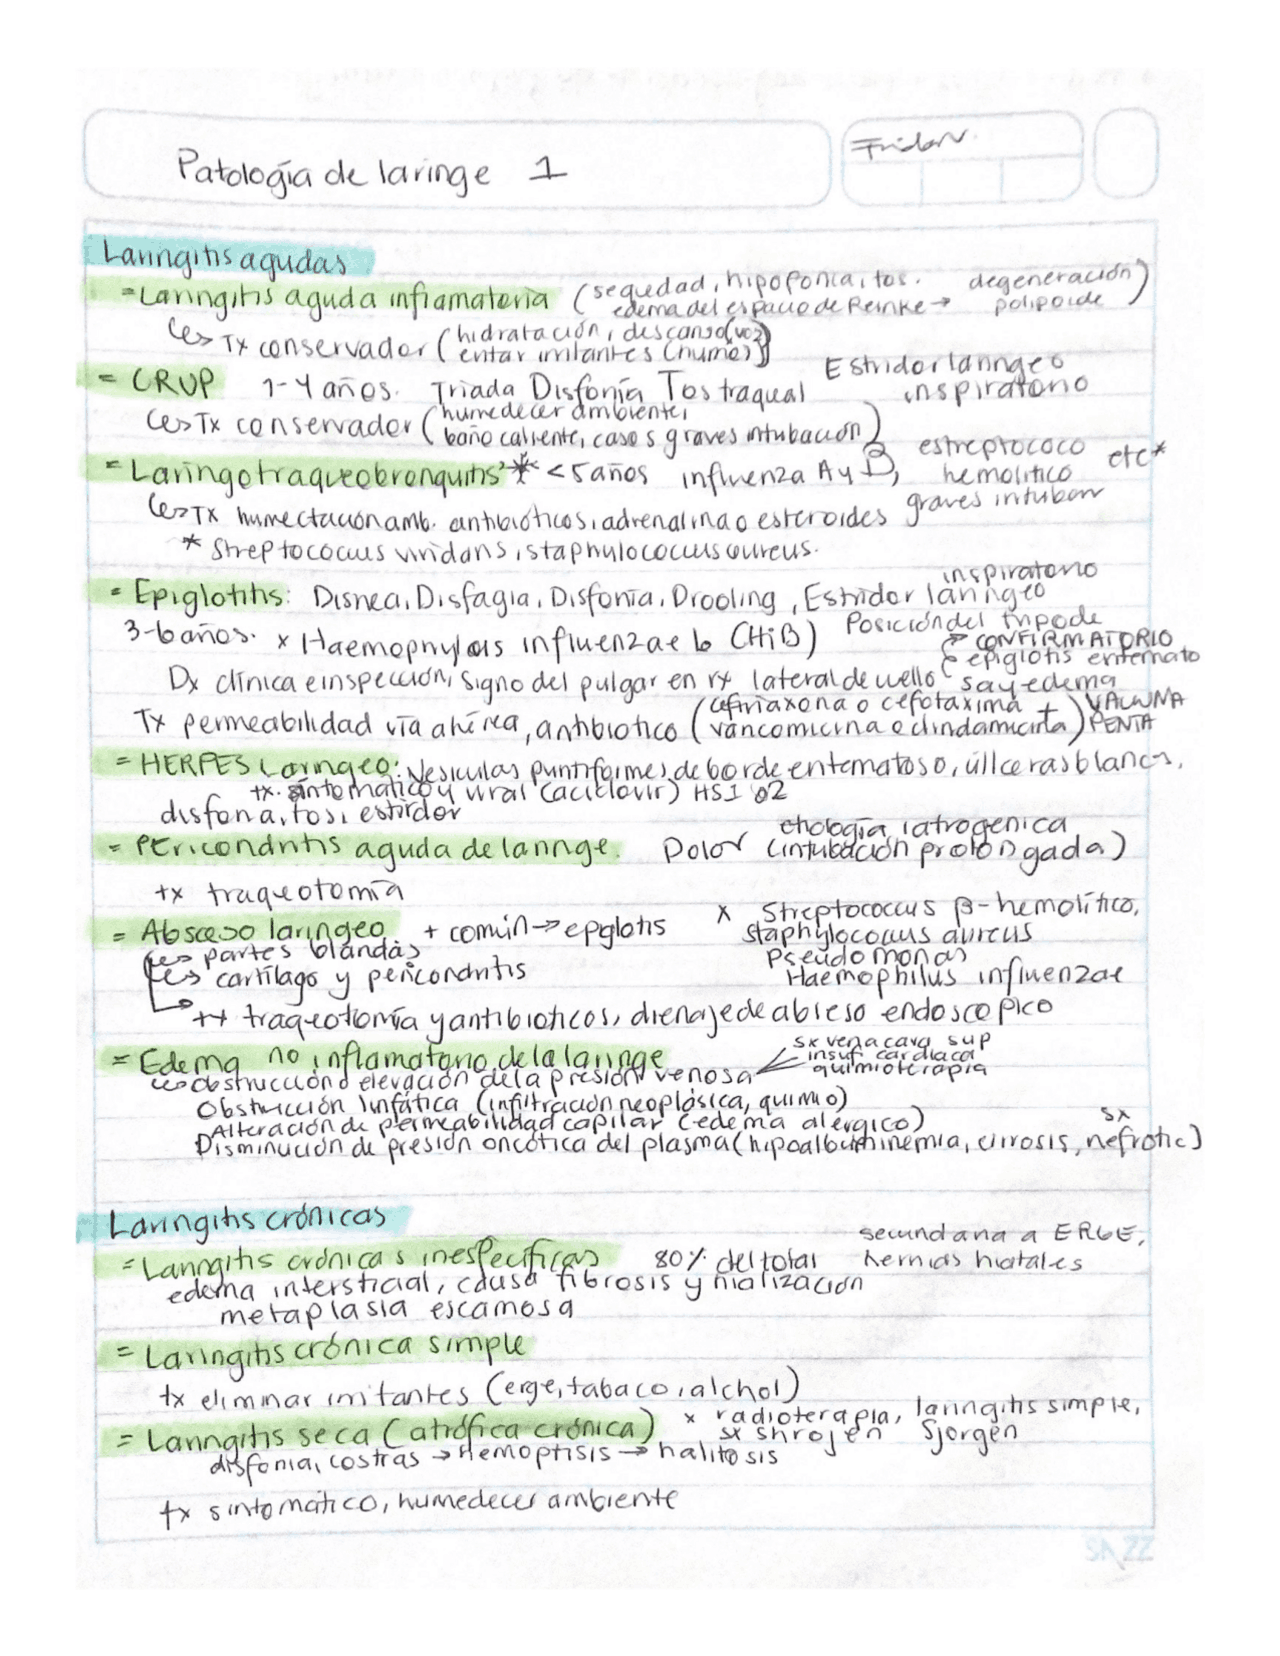 Patología de laringe 1
Laringitis agudas
= Laringitis aguda inflamatoria (sequedad, hipofonía, tos. degeneración)
edema del espacio de Reinke → polipoide
↳ Tx conservador (hidratación, descanso (voz)
evitar irritantes (humo))
= CRUP 1-4 años. Triada Disfonía Tos traqual Estridor laringeo
inspiratorio
↳ Tx conservador (humedecer ambiente,
baño caliente, casos graves intubación)
= Laringotraqueobronquitis * < 5 años influenza A y B, estreptococo etc*
hemolitico
↳ Tx humectación amb. antibióticos, adrenalina o esteroides graves intubar
* Streptococcus viridans, staphylococcus aureus.
= Epiglotitis: Disnea, Disfagia, Disfonía, Drooling, Estridor laringeo inspiratorio
3-6 años. x Haemophylus influenzae b (HiB) Posición del tripode
→ CONFIRMATORIO
Dx clínica e inspección, signo del pulgar en rx lateral de cuello epiglotis eritemato
sa y edema
Tx permeabilidad vía aérea, antibiotico (ceftriaxona o cefotaxima +
vancomicina o clindamicina) VACUNA
PENTA
= HERPES Laringeo: Vesiculas puntiformes, de borde eritematoso, úllceras blancs,
tx. sintomático y viral (aciclovir) HS1 o2
disfona, tos, estirdor
= PEricondritis aguda de laringe. Dolor etiología iatrogenica
(intubación prolongada)
tx traqueotomía
= Absceso laringeo + común → epiglotis x Streptococcus β-hemolítico,
↳ partes blandas staphylococcus aureus
↳ cartílago y pericondritis Pseudomonas
Haemophilus influenzae
↳ tx traqueotomía y antibioticos, drenaje de abseso endoscopico
= Edema no inflamatorio de la laringe sx vena cava sup
insuf. cardiaca
↳ obstrucción o elevación de la presión venosa quimioterapia
Obstrucción linfática (infiltración neoplásica, quimio)
Alteración de permeabilidad capilar (edema alérgico)
Disminución de presión oncótica del plasma (hipoalbuminemia, cirrosis, sx nefrotic)
Laringitis crónicas
= Laringitis crónicas inespecíficas 80% del total secundaria a ERGE,
hernias hiatales
edema intersticial, causa fibrosis y hialización
metaplasia escamosa
= Laringitis crónica simple
tx eliminar irritantes (erge, tabaco, alchol)
= Laringitis seca (atrófica crónica) x radioterapia, laringitis simple,
sx shrojen Sjorgën
disfonia, costras → Hemoptisis → halitosis
tx sintomático, humedecer ambiente
SAZZ